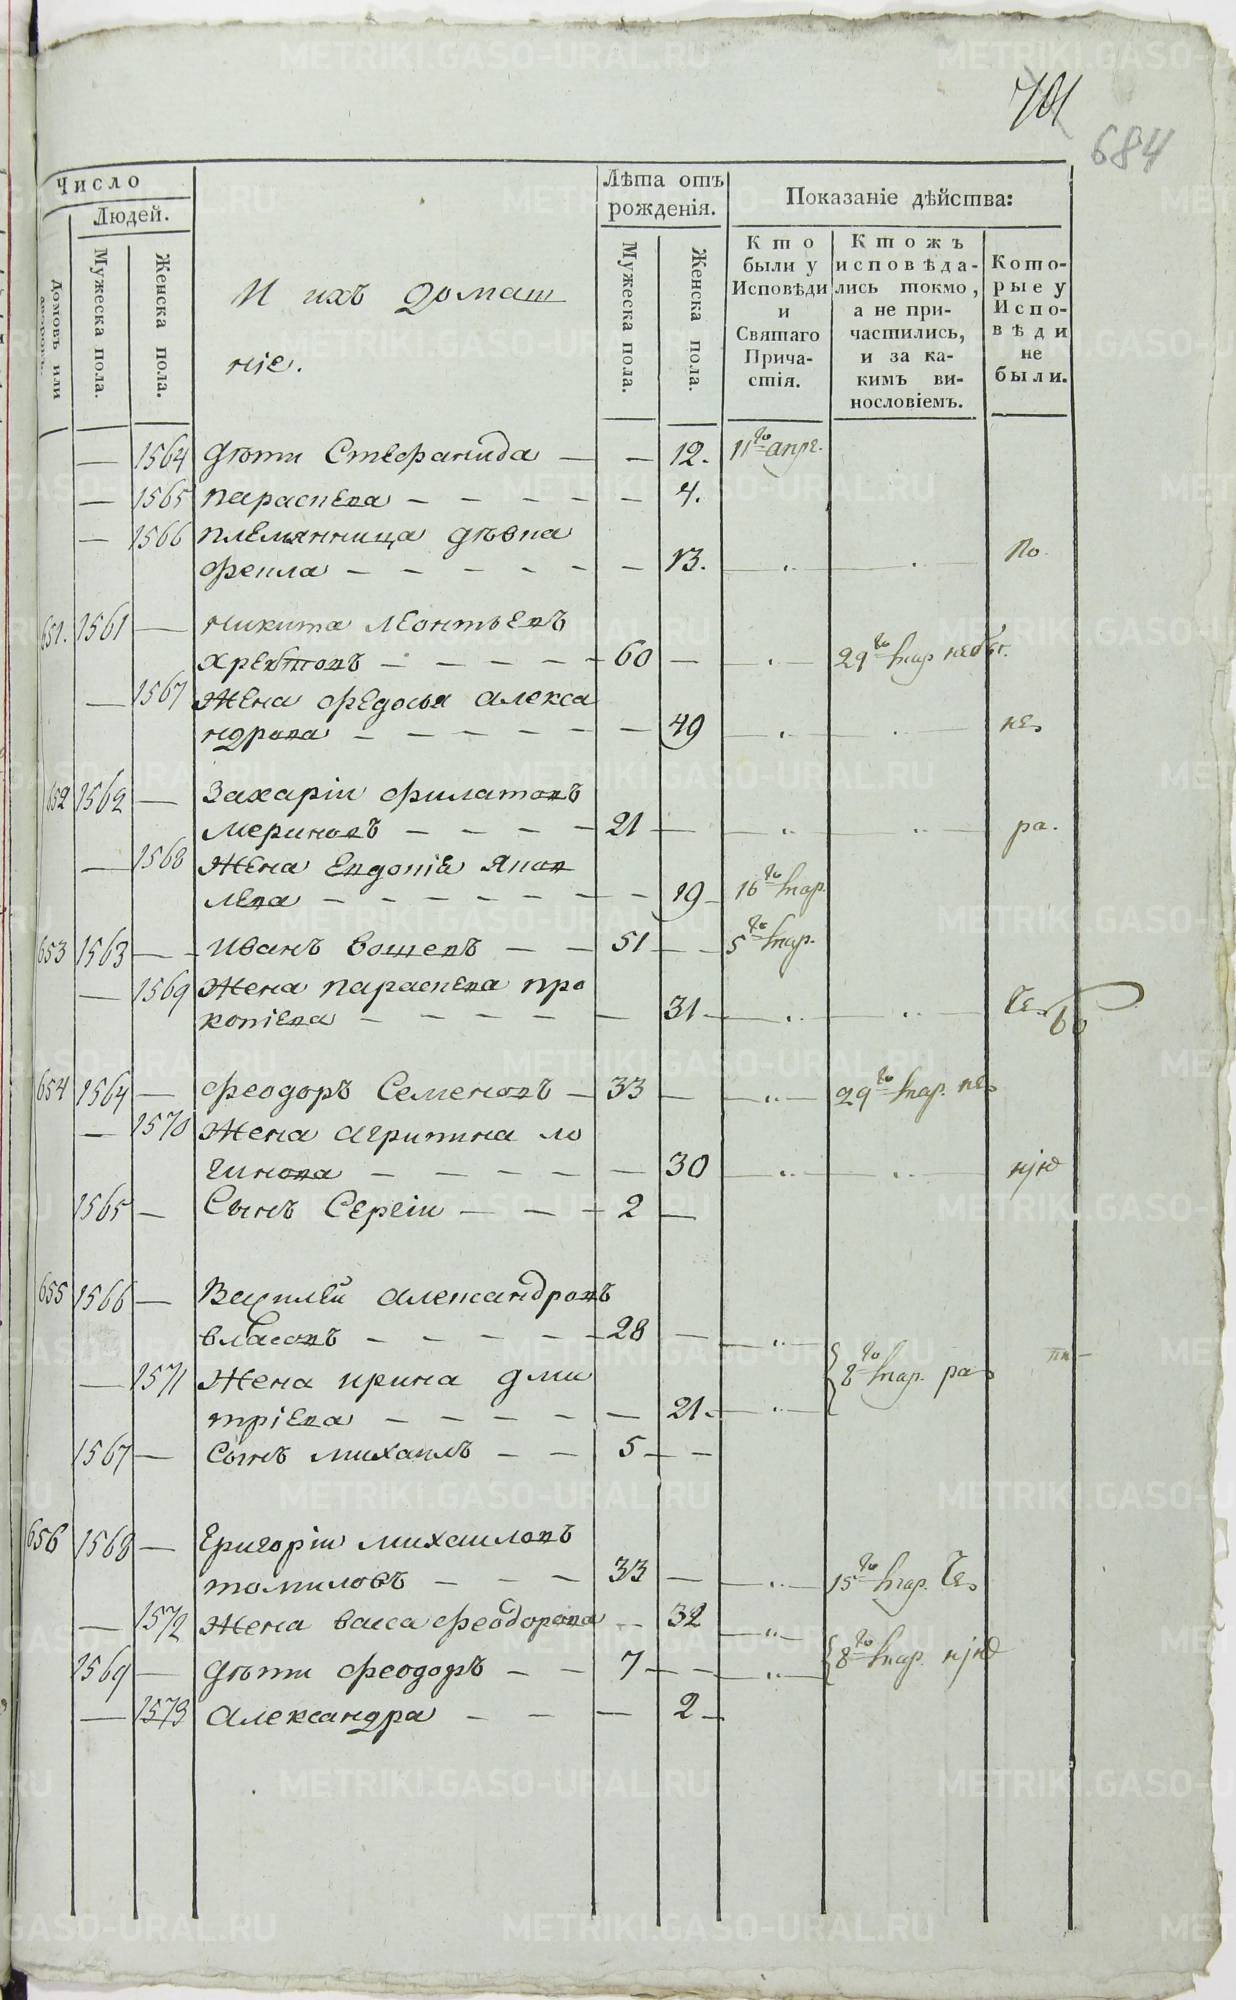 701
684
Число
Людей.
Домовъ или дворовъ.
Мужеска пола.
Женска пола.
И ихъ домаш
ніе.
Лѣта отъ рожденія.
Мужеска пола.
Женска пола.
Показаніе дѣйства:
Кто были у Исповѣди и Святаго Прича- стія.
Ктожъ исповѣда- лись токмо, а не при- частились, и за ка- кимъ ви- нословіемъ.
Кото- рые у Испо- вѣди не были.
— 1564 Дѣти Стефанида — — 12. 11го апре.
— 1565 параскева — — — — — — 4.
— 1566 племянница дѣвка
фекла — — — — — — 13. по
651. 1561 — никита леонтьевъ
хребтовъ — — — — — 60 — 29го мар
— 1567 жена федосья алекса
ндрова — — — — — — 49 не
652 1562 — Захаріи филатовъ
мериновъ — — — — 21 — ра.
— 1568 жена евдокіа яков
лева — — — — — — — 19 16го мар.
653 1563 — иванъ вошевъ — — 51 — 5го мар.
— 1569 жена параскева про
копіева — — — — — — 31 —
654 1564 — феодоръ Семеновъ — 33 — 29го мар. не
— 1570 жена агрипина ло
гинова — — — — — 30
1565 — Сынъ Сергіи — — — 2 —
655 1566 — Василей александровъ
власовъ — — — — — 28 —
— 1571 жена ирина дми
тріева — — — — — — 21. 8го мар. ра
1567 — Сынъ михаилъ — — 5 —
656 1568 — Григоріи михаиловъ
томиловъ — — — 33 — 15го мар.
— 1572 жена васса феодорова — 32
1569 — Дѣти феодоръ — — 7 — — 8го мар.
— 1573 александра — — — — 2 —
METRIKI.GASO-URAL.RU